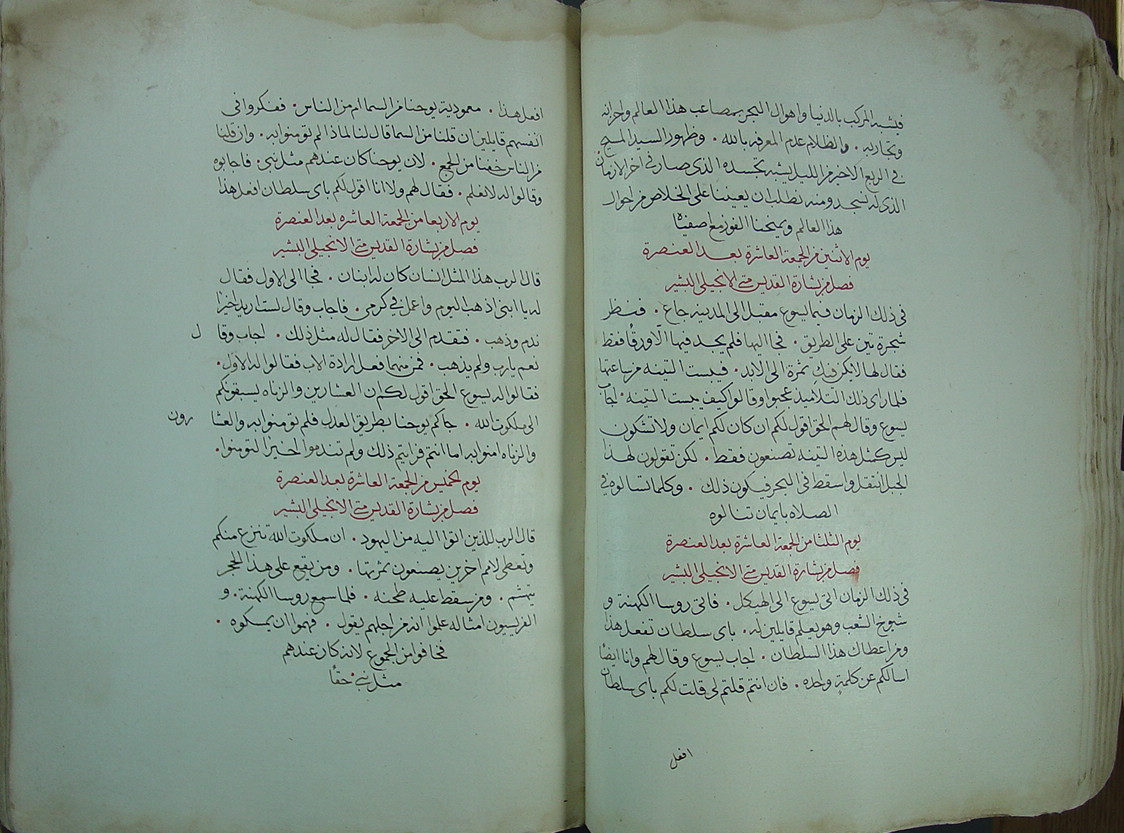 فيشبه المركب بالدنيا واهوال البحر بمصاعب هذا العالم واحزانه
وتجاربه . والظلام عدم المعرفه بالله . وظهور السيد المسيح
في الربع الاخير من الليل يشبه بجسده الذي صار في اخر الازمان
الذي له نسجد ومنه نطلب ان يعيننا على الخلاص من احوال
هذا العالم ويمنحنا الفوز مع اصفيائه
يوم الاثنين من الجمعة العاشرة بعد العنصرة
فصل من بشارة القديس متى الانجيلي البشير
في ذلك الزمان فيما يسوع مقبل الى المدينه جاع . فنظر
شجرة تين على الطريق . فجا اليها فلم يجد فيها الا ورقا فقط
فقال لها لا يكن فيك ثمرة الى الابد . فيبست التينه من ساعتها
فلما راى ذلك التلاميد عجبوا وقالوا كيف يبست التينه . اجاب
يسوع وقال لهم الحق اقول لكم ان كان لكم ايمان ولا تشكون
ليس كمثل هذه التينه تصنعون فقط . لكن تقولون لهذا
الجبل انتقل واسقط في البحر فيكون ذلك . وكلما تسالوه في
الصلاه بايمان تنالوه
يوم الثلثا من الجمعة العاشرة بعد العنصرة
فصل من بشارة القديس متى الانجيلي البشير
في ذلك الزمان اتى يسوع الى الهيكل . فاتى روسا الكهنة و
شيوخ الشعب وهو يعلم قايلين له . باى سلطان تفعل هذا
ومن اعطاك هذا السلطان . اجاب يسوع وقال لهم وانا ايضا
اسالكم عن كلمة واحده . فان انتم قلتم لي قلت لكم باى سلطان
افعل
افعل هذا . معمودية يوحنا من السما ام من الناس . ففكروا في
انفسهم قايلين ان قلنا من السما قال لنا لماذا لم تومنوا به . وان قلنا
من الناس خفنا من الجمع . لان يوحنا كان عندهم مثل نبي . فاجابوه
وقالوا له لا نعلم . فقال لهم ولا انا اقول لكم باى سلطان افعل هذا
يوم الاربعا من الجمعة العاشره بعد العنصرة
فصل من بشارة القديس متى الانجيلي البشير
قال الرب هذا المثل انسان كان له ابنان . فجا الى الاول فقال
له يا ابني اذهب اليوم واعمل في كرمي . فاجاب وقال لست اريد اخيرا
ندم وذهب . فتقدم الى الاخر فقال له مثل ذلك . اجاب وقال
نعم يارب ولم يذهب . فمن منهما فعل ارادة الاب فقالوا له الاول .
فقالوا له يسوع الحق اقول لكم ان العشارين والزناه يسبقونكم
الى ملكوت الله . جاكم يوحنا بطريق العدل فلم تومنوا به والعشارون
والزناه امنوا به اما انتم فرايتم ذلك ولم تندموا اخيرا لتومنوا .
يوم الخميس من الجمعة العاشرة بعد العنصرة
فصل من بشارة القديس متى الانجيلي البشير
قال الرب للذين اتوا اليه من اليهود . ان ملكوت الله تنزع منكم
وتعطى لامم اخرين يصنعون ثمرتها . ومن يقع على هذا الحجر
يتهشم . ومن سقط عليه طحنه . فلما سمع روسا الكهنة . و
الفريسيون امثاله علموا انه من اجلهم يقول . فهموا ان يمسكوه .
فخافوا من الجموع لانه كان عندهم
مثل نبي . حقا